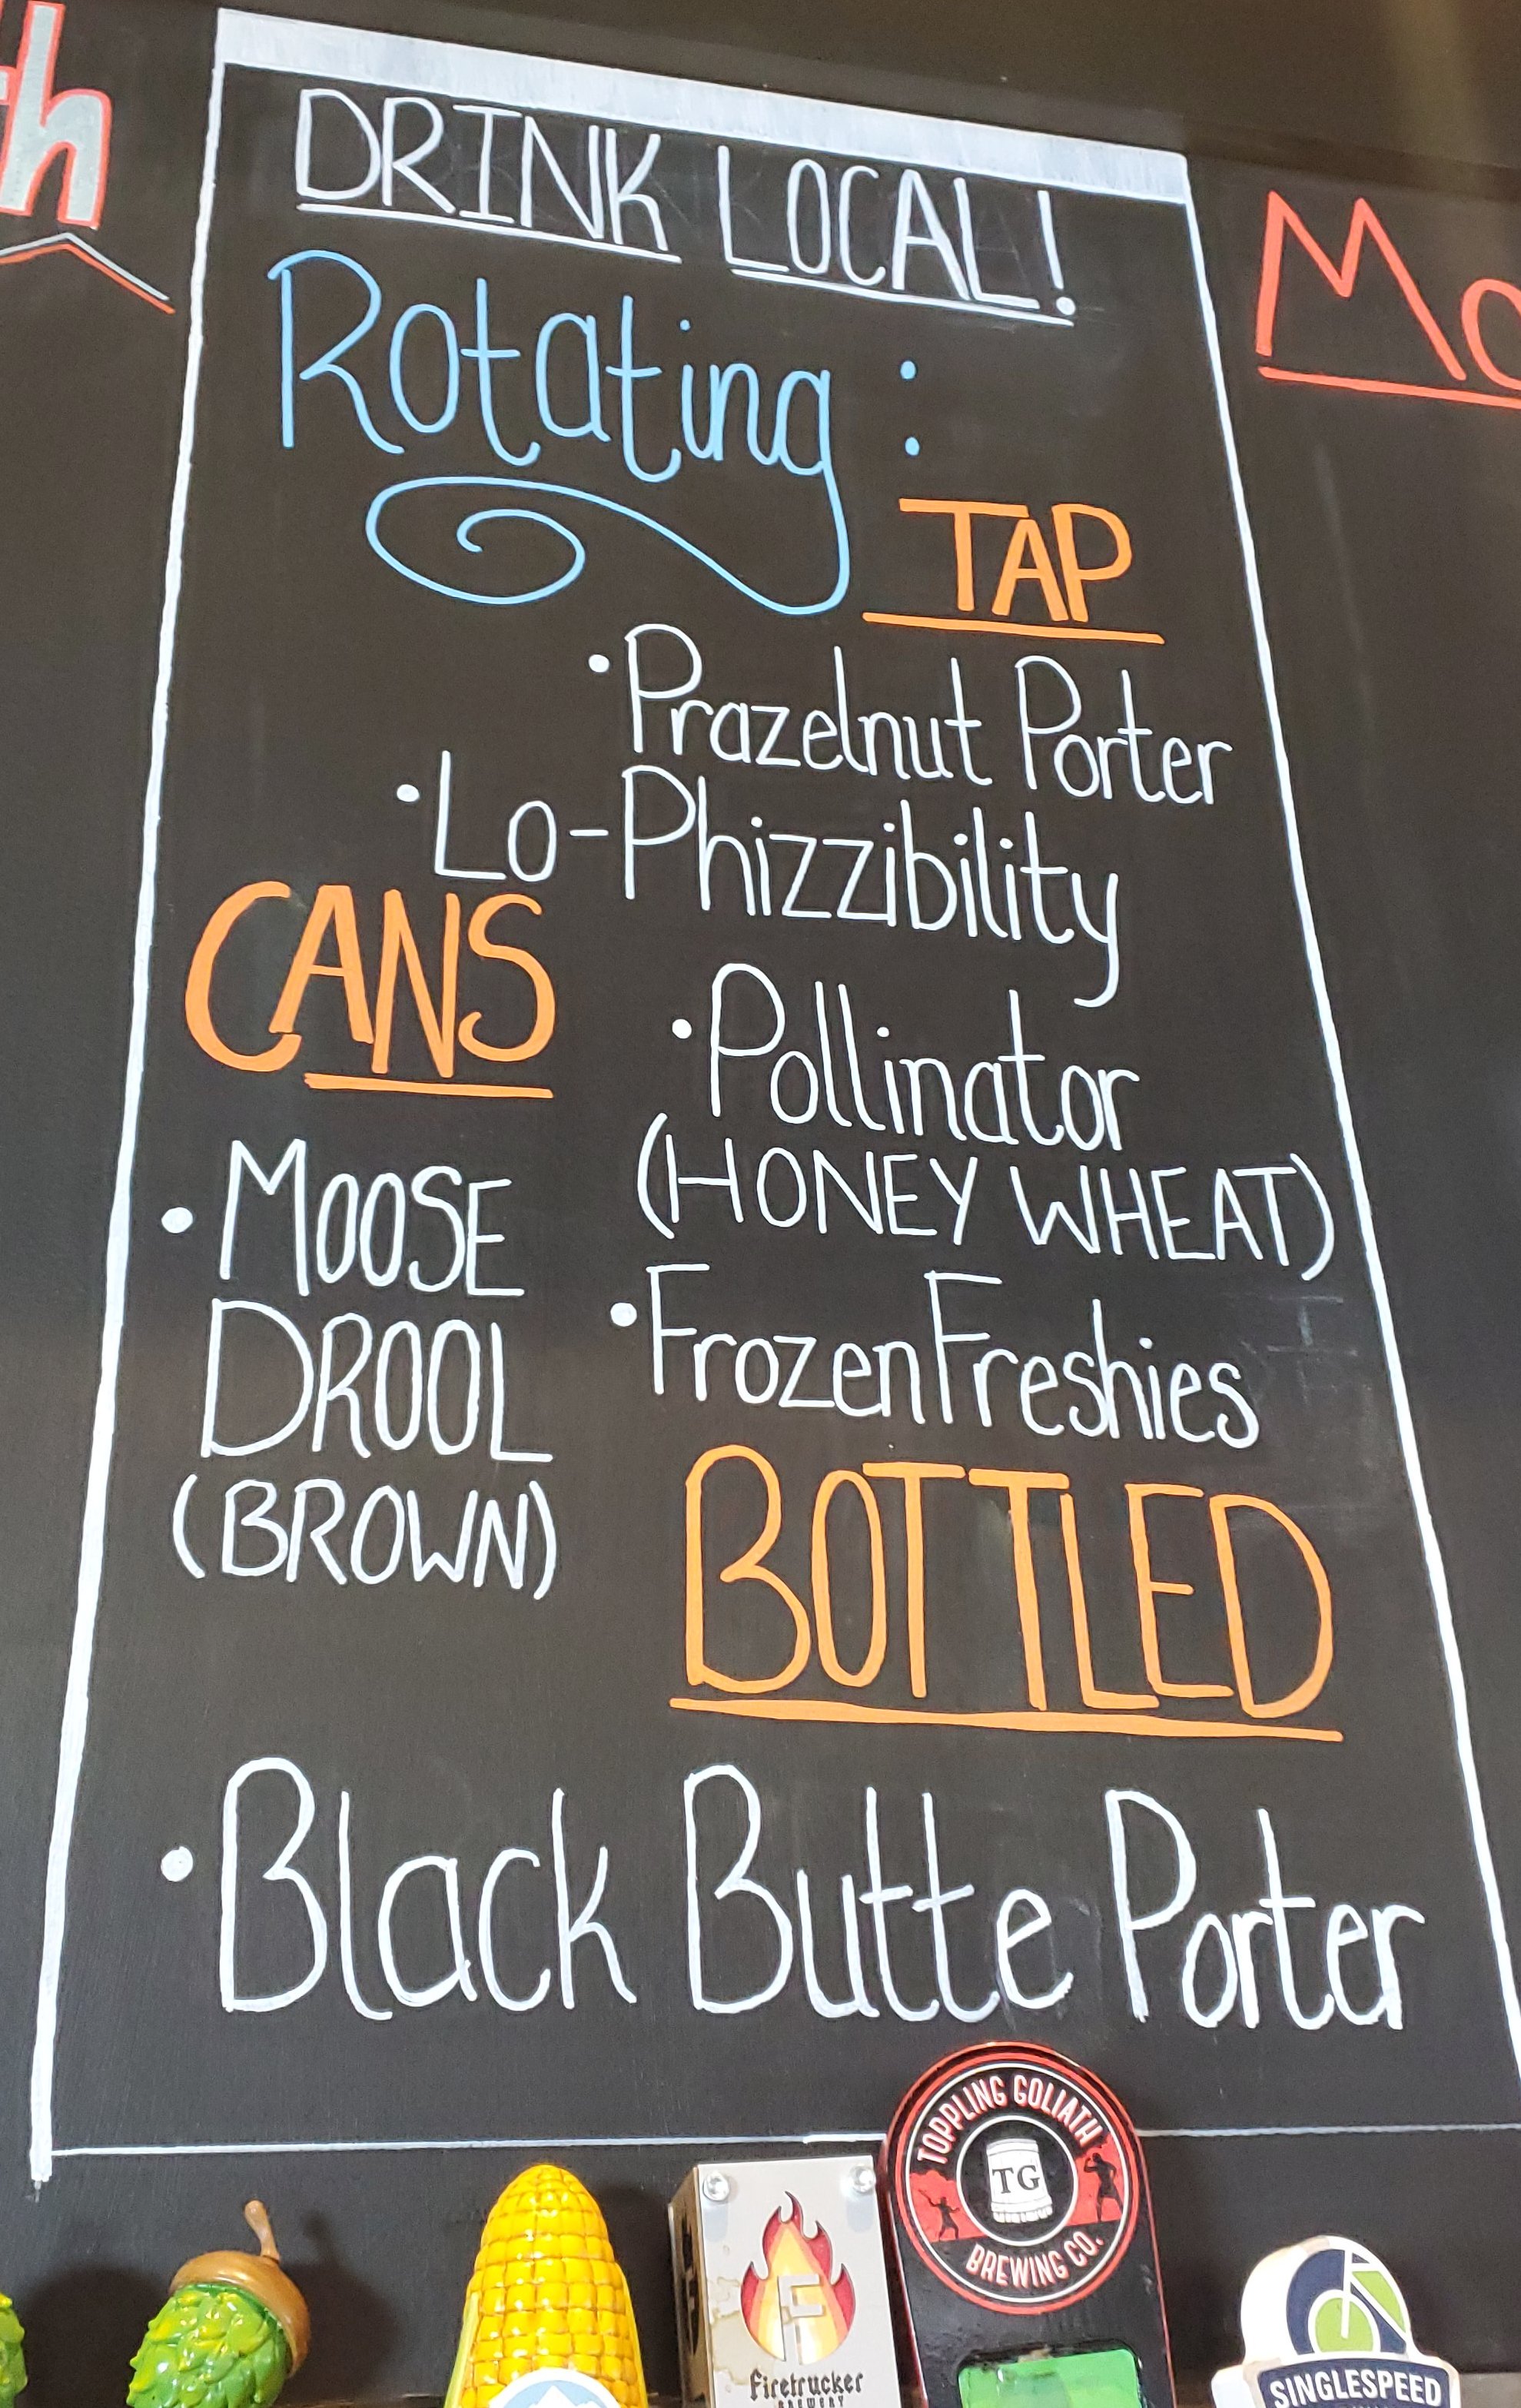 th
DRINK LOCAL!
Mo
Rotating:
TAP
• Prazelnut Porter
• Lo-Phizzibility
CANS
• Pollinator
(HONEY WHEAT)
• MOOSE
DROOL
(BROWN)
• Frozen Freshies
BOTTLED
• Black Butte Porter
TOPPLING GOLIATH
TG
BREWING CO.
F
Firetrucker
BREWERY
SINGLESPEED